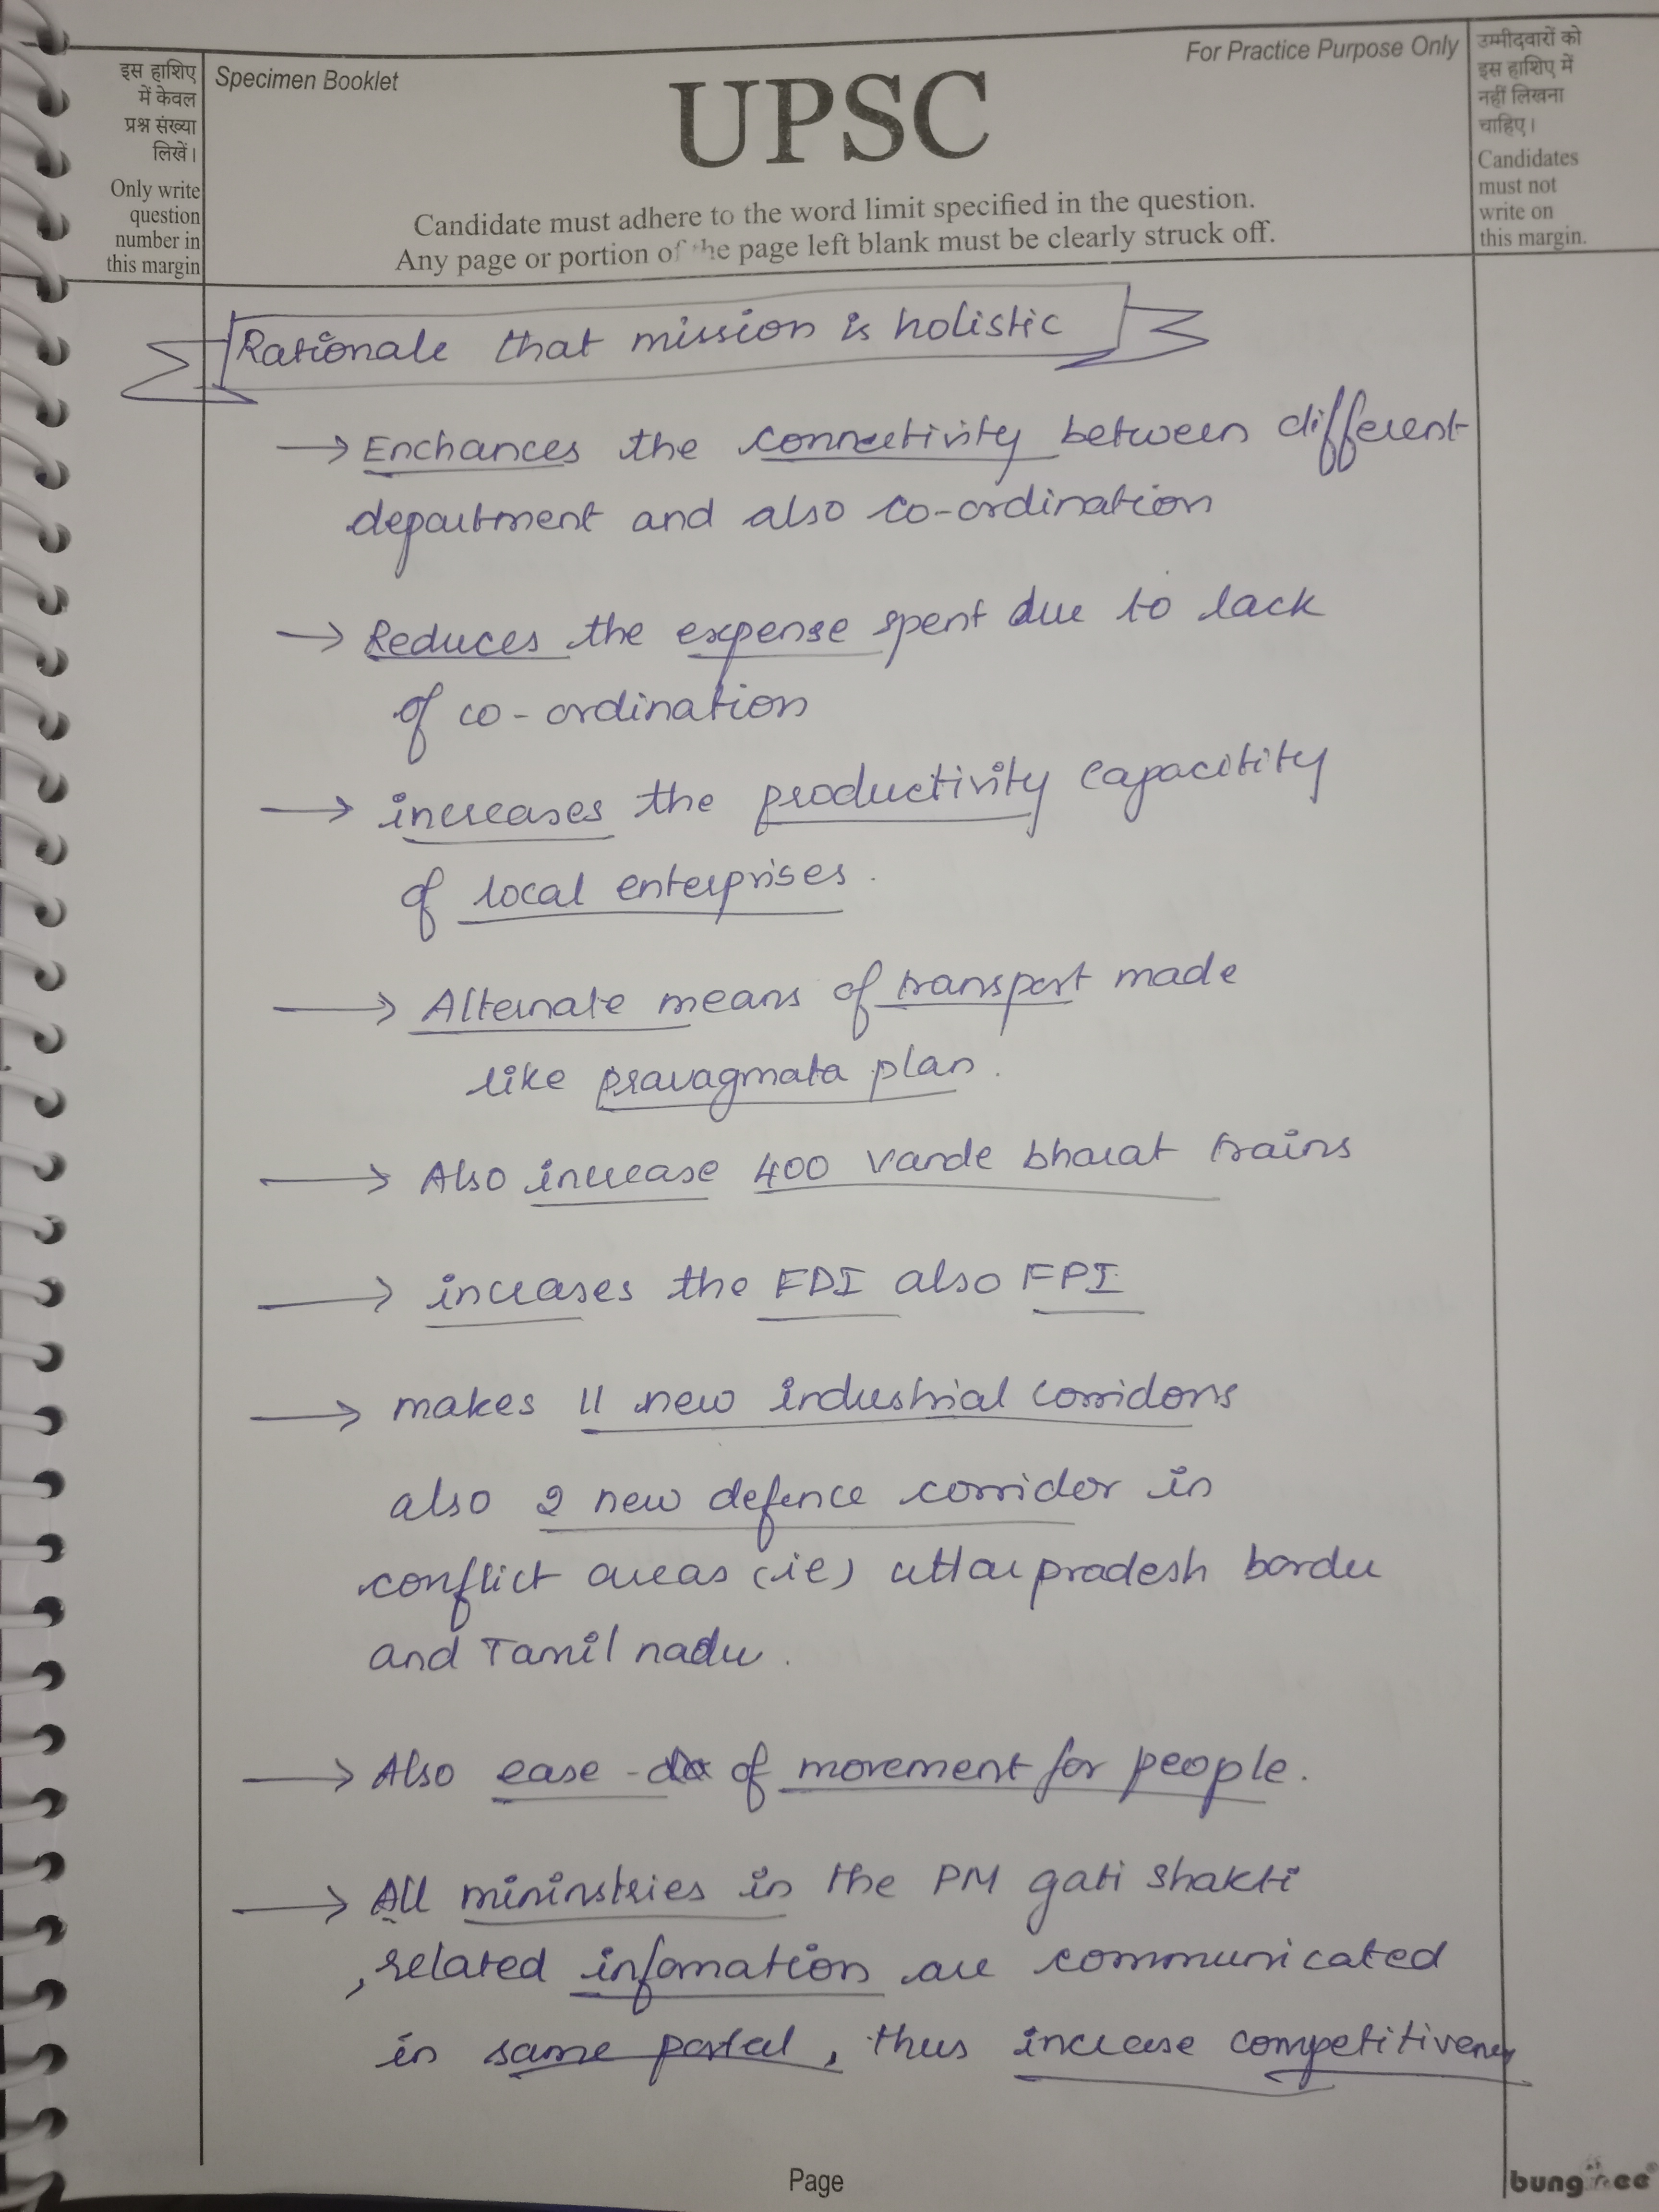 इस हाशिए
में केवल
प्रश्न संख्या
लिखें।
Only write
question
number in
this margin
Specimen Booklet
For Practice Purpose Only
UPSC
Candidate must adhere to the word limit specified in the question.
Any page or portion of the page left blank must be clearly struck off.
उम्मीदवारों को
इस हाशिए में
नहीं लिखना
चाहिए।
Candidates
must not
write on
this margin.
Rationale that mission is holistic
→ Enchances the connectivity between different
department and also co-ordination
→ Reduces the expense spent due to lack
of co-ordination
→ increases the productivity capacitity
of local enterprises.
→ Alternate means of transport made
like pravagmata plan.
→ Also increase 400 Vande bharat trains
→ increases the FDI also FPI.
→ makes 11 new industrial corridors
also 2 new defence corridor in
conflict areas (ie) uttar pradesh border
and Tamil nadu.
→ Also ease - of movement for people.
→ All mininstries in the PM gati shakti
, related infomation are communicated
in same portal, thus increase competitiveness
Page